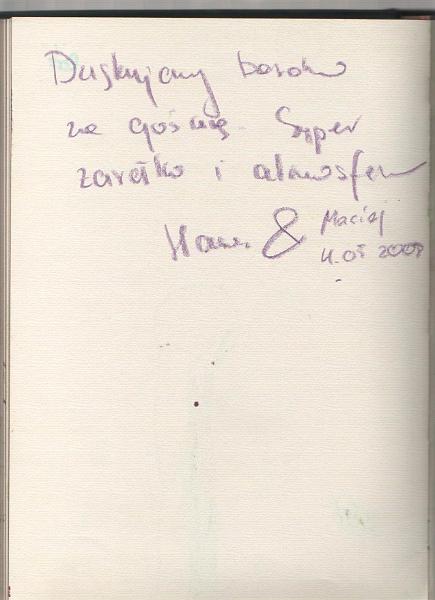 Dziękujemy bardzo
za gościnę. Super
żarełko i atmosfera
&
Maciej
2008